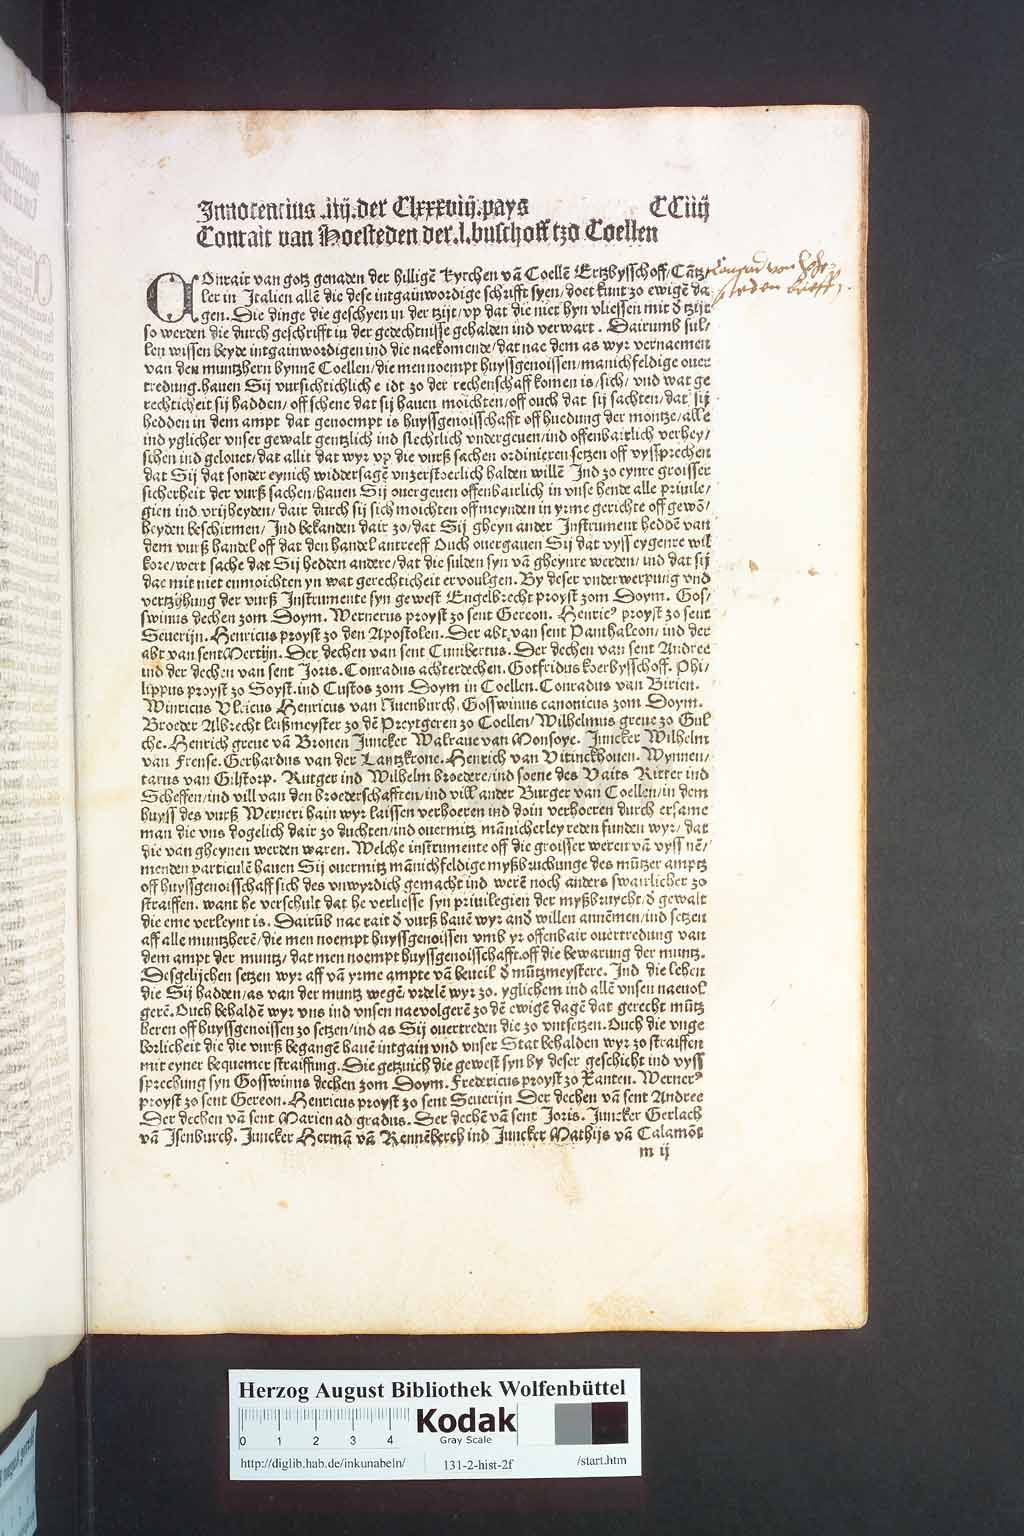 Innocencius .iiij. der Clxxxviij. pays CCiiij
Conrait van Hoesteden der .l. buschoff tzo Coellen
COnrait van gotz genaden der hilligē kyrchen vā Coellē Ertzbysschoff/ Cātz/
Konrad von
ler in Italien allē die dese intgainwordige schrifft syen/ doet kunt zo ewigē da
gen. Die dinge die geschyen in der tzijt/ vp dat die niet hyn vliessen mit d̄ tzijt
so werden die durch geschrifft in der gedechtnisse gehalden ind verwart. Dairumb sul/
len wissen beyde intgainwordigen ind die naekomende/ dat nae dem as wyr vernaemen
van den muntzhern bynnē Coellen/ die men noempt huyssgenoissen/ manichfeldige ouer
tredung. hauen Sij vursichtichliche idt zo der rechenschaff komen is/ sich/ vnd wat ge
rechticheit sij hadden/ off schene dat sij hauen moichten/ off ouch dat sij sachten/ dat sij
hedden in dem ampt dat genoempt is huyssgenoisschafft off huedung der montze/ alle
ind yglicher vnser gewalt gentzlich ind slechtlich vndergeuen/ ind offenbairlich verhey/
schen ind gelouet/ dat allit dat wyr vp die vurß sachen ordinieren setzen off vyssprechen
dat Sij dat sonder eynich widdersagē vnzerstoerlich halden willē Ind zo eynre groisser
sicherheit der vurß sachen/ hauen Sij ouergeuen offenbairlich in vnse hende alle priuile/
gien ind vrijheyden/ dair durch sij sich moichten off meynden in yrme gerichte off gewō/
heyden beschirmen/ Ind bekanden dair zo/ dat Sij gheyn ander Instrument heddē van
dem vurß handel off dat den handel antreeff Ouch ouergauen Sij dat vyss eygenre wil
kore/ wert sache dat Sij hedden andere/ dat die sulden syn vā gheynre werden/ vnd dat sij
dae mit niet enmoichten yn wat gerechticheit ervoulgen. By deser vnderwerpung vnd
vertzijhung der vurß Instrumente syn gewest Engelbrecht proyst zom Doym. Gos/
swinus dechen zom Doym. Wernerus proyst zo sent Gereon. Henricꝰ proyst zo sent
Seuerijn. Henricus proyst zo den Apostolen. Der abt van sent Panthaleon/ ind der
abt van sent Mertijn. Der dechen van sent Cunibertus. Der dechen van sent Andree
ind der dechen van sent Joris. Conradus achterdechen. Gotfridus koerbysschoff. Phi/
lippus proyst zo Soyst. ind Custos zom Doym in Coellen. Conradus van Birien.
Winricus Henricus van Gosswinus canonicus zom Doym.
Broeder Albrecht leißmeyster zo dē Preytgeren zo Coellen/ Wilhelmus greue zo Gul
che. Henrich greue vā Bronen Juncker Walraue van Monsoye. Juncker Wilhelm
van Frense. Gerhardus van der Lantzkrone. Henrich van Vitinckhouen. Wynnen/
tarus van Gilstorp. Rutger ind Wilhelm broedere/ ind soene des Vaits Ritter ind
Scheffen/ ind vill van den broederschafften/ ind vill ander Burger van Coellen/ in dem
huyss des vurß Werneri hain wyr laissen verhoeren ind doin verhoeren durch ersame
man die vns dogelich dair zo duchten/ ind ouermitz mānicherley reden funden wyr/ dat
die van gheynen werden waren. Welche instrumente off die groisser weren vā vyss nē/
menden particulē hauen Sij ouermitz mānichfeldige myßbruchunge des mūtzer amptz
off huyssgenoisschaff sich des vnwyrdich gemacht ind werē noch anders swairlicher zo
straiffen. want he verschult dat he verliesse syn priuilegien der myßbruycht/ d̄ gewalt
die eme verleynt is. Dairūb nae rait d̄ vurß hauē wyr and̄ willen annēmen/ ind setzen
aff alle muntzherē/ die men noempt huyssgenoissen vmb yr offenbair ouertredung van
dem ampt der muntz/ dat men noempt huyssgenoisschafft. off die bewarung der muntz.
Desgelijchen setzen wyr aff vā yrme ampte vā beueil d̄ mūtzmeystere. Ind die lehen
die Sij hadden/ as van der muntz wegē/ vrdelē wyr zo. yglichem ind allē vnsen naeuol
gerē. Ouch behaldē wyr vns ind vnsen naevolgerē zo dē ewigē dagē dat gerecht mūtz
heren off huyssgenoissen zo setzen/ ind as Sij ouertreden die zo vntsetzen. Ouch die vnge
borlicheit die die vurß begangē hauē intgain vnd vnser Stat behalden wyr zo straiffen
mit eyner bequemer straiffung. Die getzuich die gewest syn by deser geschicht ind vyss
sprechung syn Gosswinus dechen zom Doym. Fredericus proyst zo Xanten. Wernerꝰ
proyst zo sent Gereon. Henricus proyst zo sent Seuerijn Der dechen vā sent Andree
Der dechen vā sent Marien ad gradus. Der dechē vā sent Joris. Juncker Gerlach
vā Isenburch. Juncker Hermā vā Rennēberch ind Juncker Mathijs vā Calamōt
m ij
Herzog August Bibliothek Wolfenbüttel
Kodak
0 1 2 3 4 Gray Scale
http://diglib.hab.de/inkunabeln/ 131-2-hist-2f /start.htm